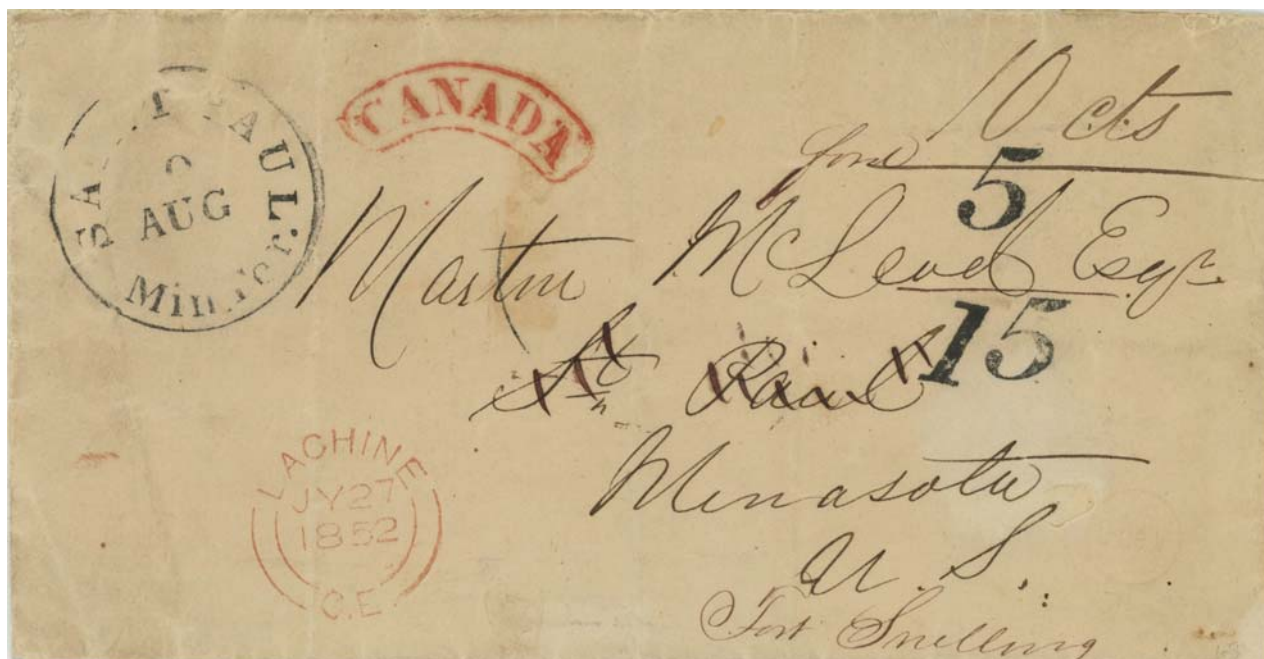 CANADA
SAINT PAUL.
AUG
Min. Ter.
10 cts
5
Martin McLeod Esqr.
15
St Paul
Minasota
U. S.
Fort Snelling
LACHINE
JY 27
1852
C.E